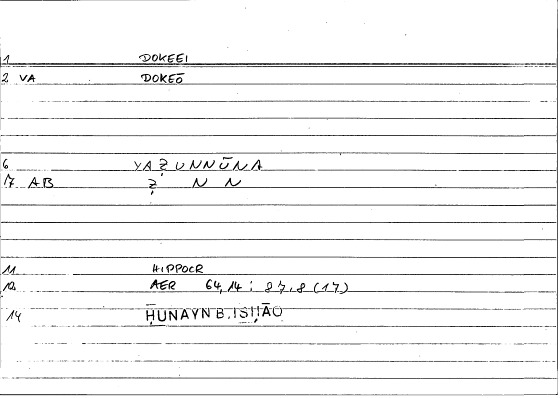 1 DOKEEI
2 VA DOKEŌ
6 YAẒUNNŪNA
7 AB Ẓ N N
11 HIPPOCR
12 AER 64,14 : 87,8 (17)
14 ḤUNAYN B. ISḤĀQ